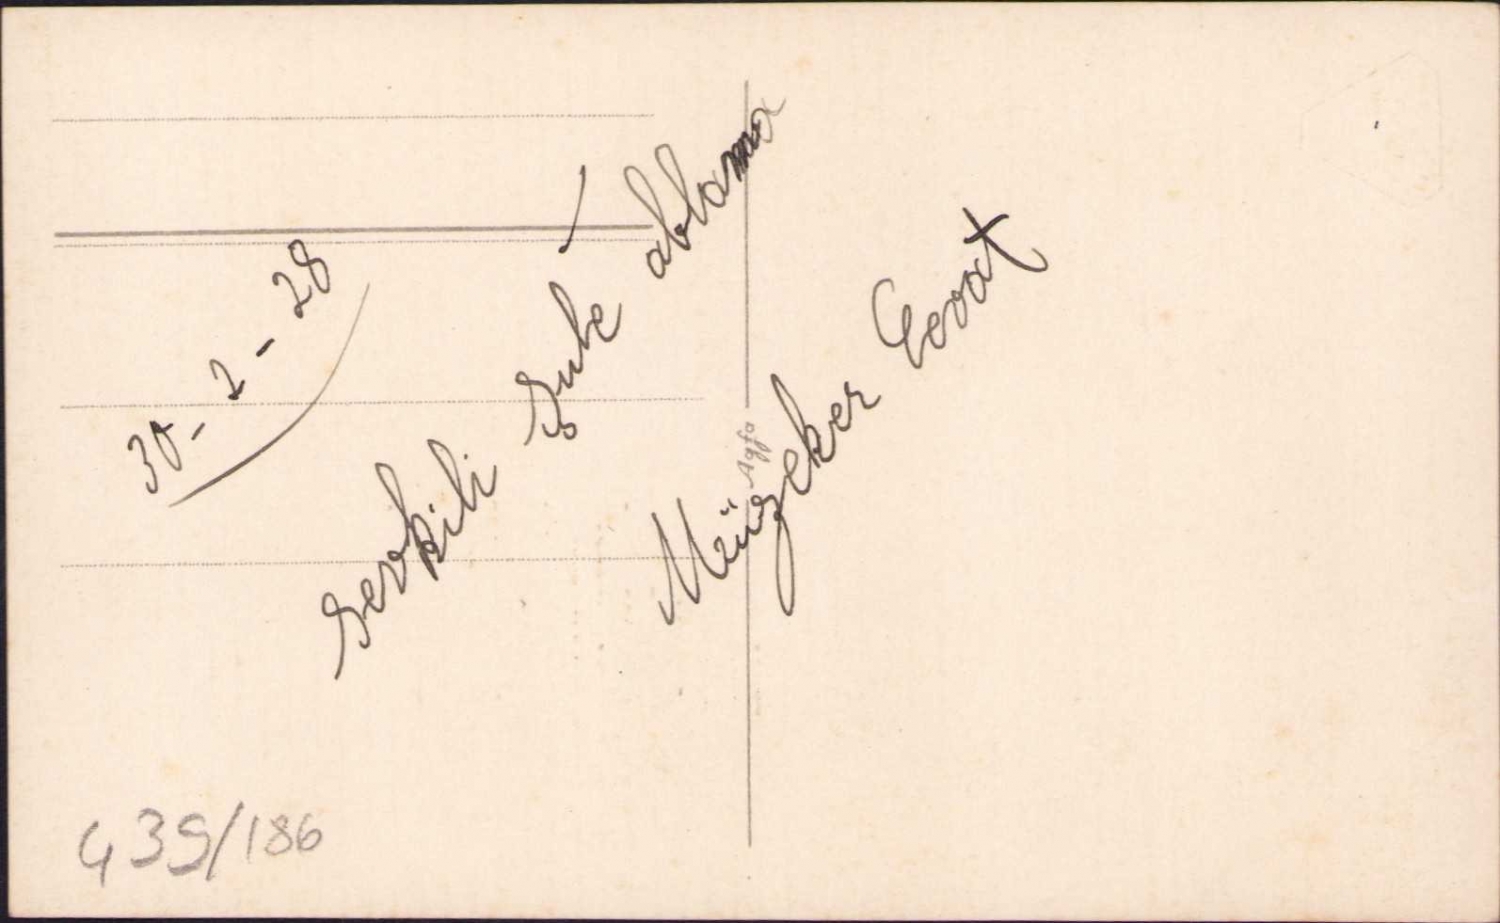 30 - 2 - 28
sevkili Şuke ablama
Müzeker Cevat
Agfa
439/186